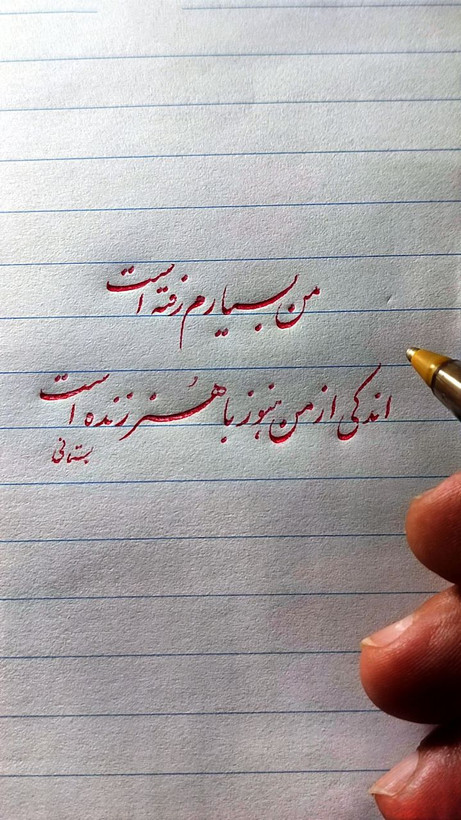 من بسیارم رفته است
اندکی از من هنوز با هُنر زنده است
بستانی